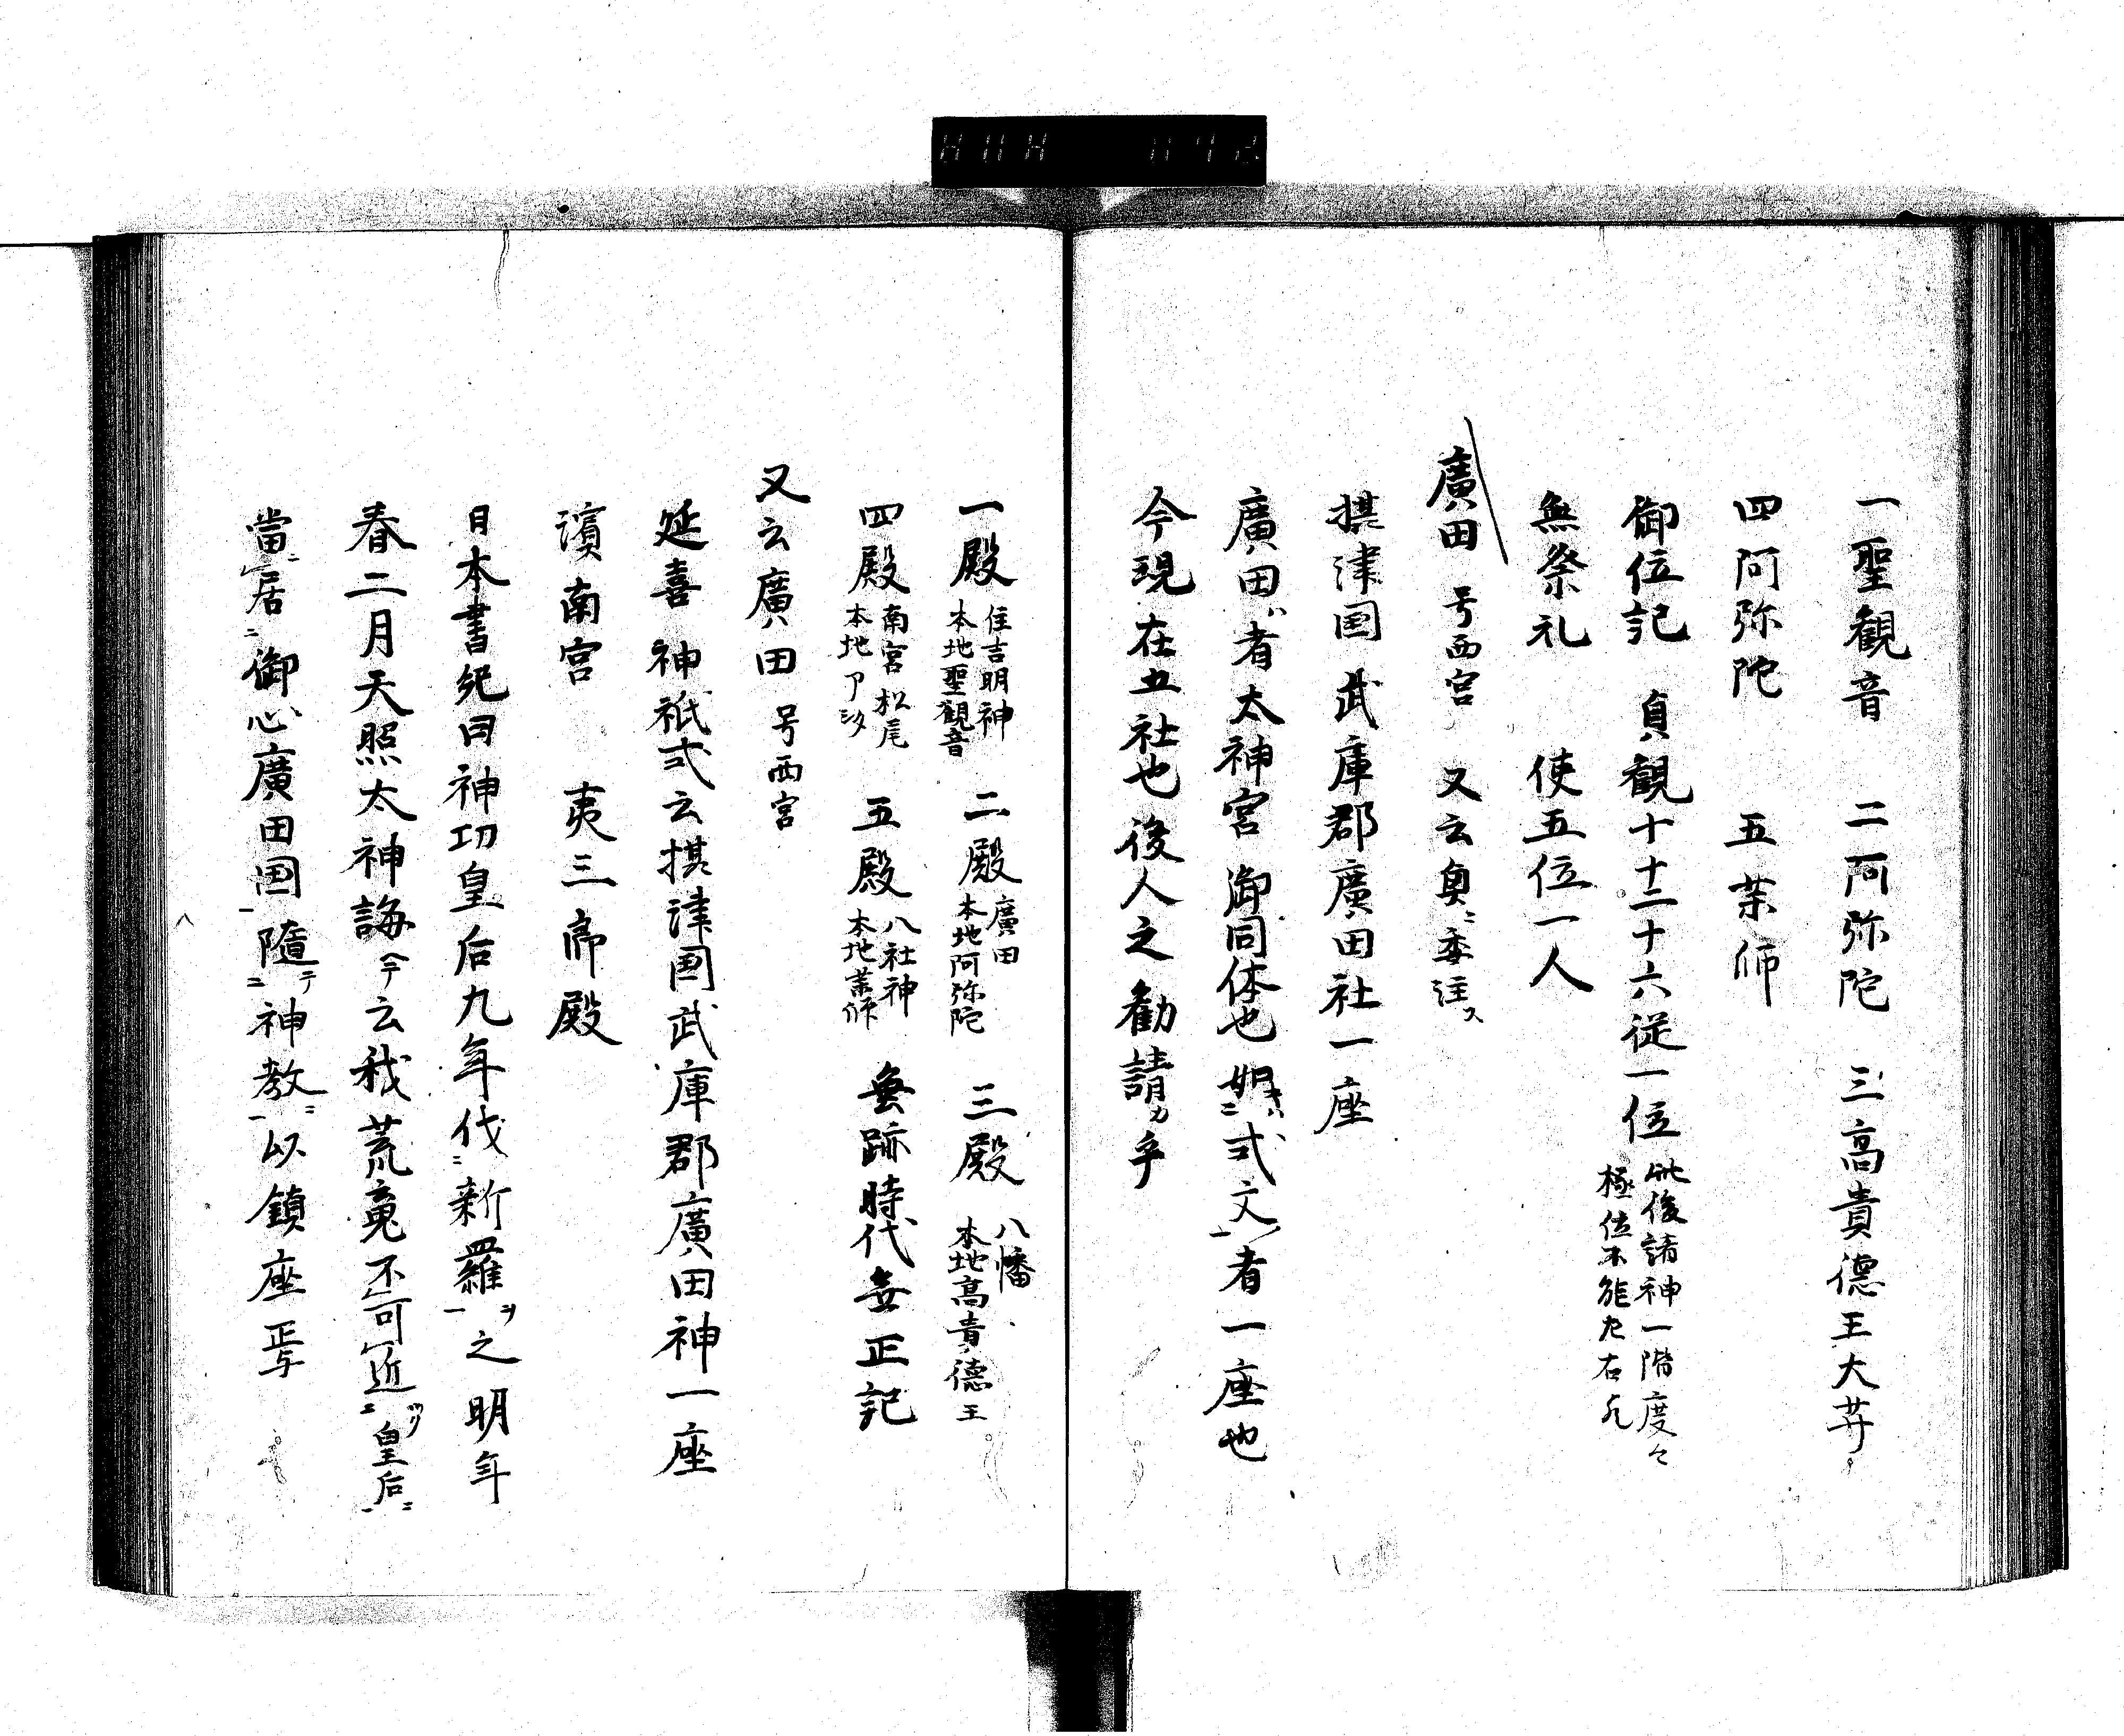 一聖観音　二阿弥陀　三高貴徳王大菩
四阿弥陀　五薬師
御位記　貞観十十二十六従一位 此後諸神一階度々 極位不能左右
無祭礼　使五位一人
廣田 号西宮 又云奥ニ委注ス
摂津国武庫郡廣田社一座
廣田ハ者太神宮御同体也如キハ二式文ノ一者一座也
今現在五社也後人之勧請カ乎
一殿 住吉明神 本地聖観音　二殿 廣田 本地阿弥陀　三殿 八幡 本地高貴徳王
四殿 南宮松尾 本地アミタ　五殿 八社神 本地薬師　垂跡時代無正記
又云廣田 号西宮
延喜神祇式云摂津国武庫郡廣田神一座
濱南宮　夷三郎殿
日本書紀曰神功皇后九年伐二新羅一ヲ之明年
春二月天照太神誨今云我荒魂不可近二皇后一ニ
當ニ居二御心廣田国一隨テ二神教ニ一以鎮座